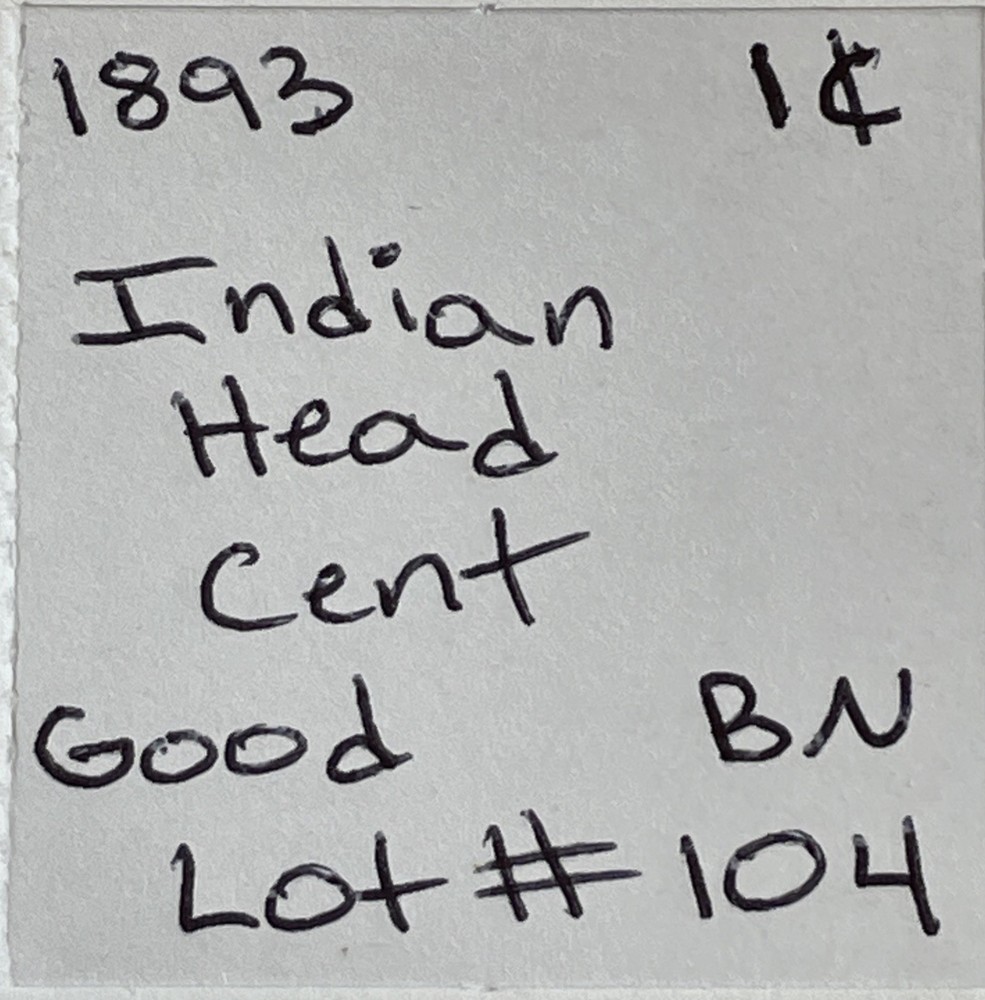 1893 1¢
Indian
Head
Cent
Good BN
Lot # 104